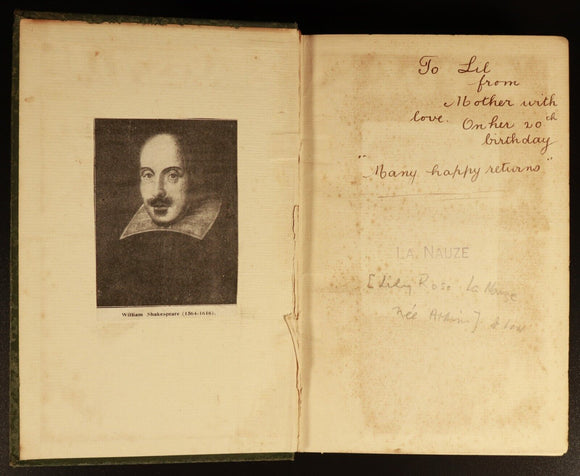 William Shakespeare (1564-1616).
To Lil
from
Mother with
love. On her 20th
birthday
"Many happy returns"
LA NAUZE
[Lily Rose La Nauze
née